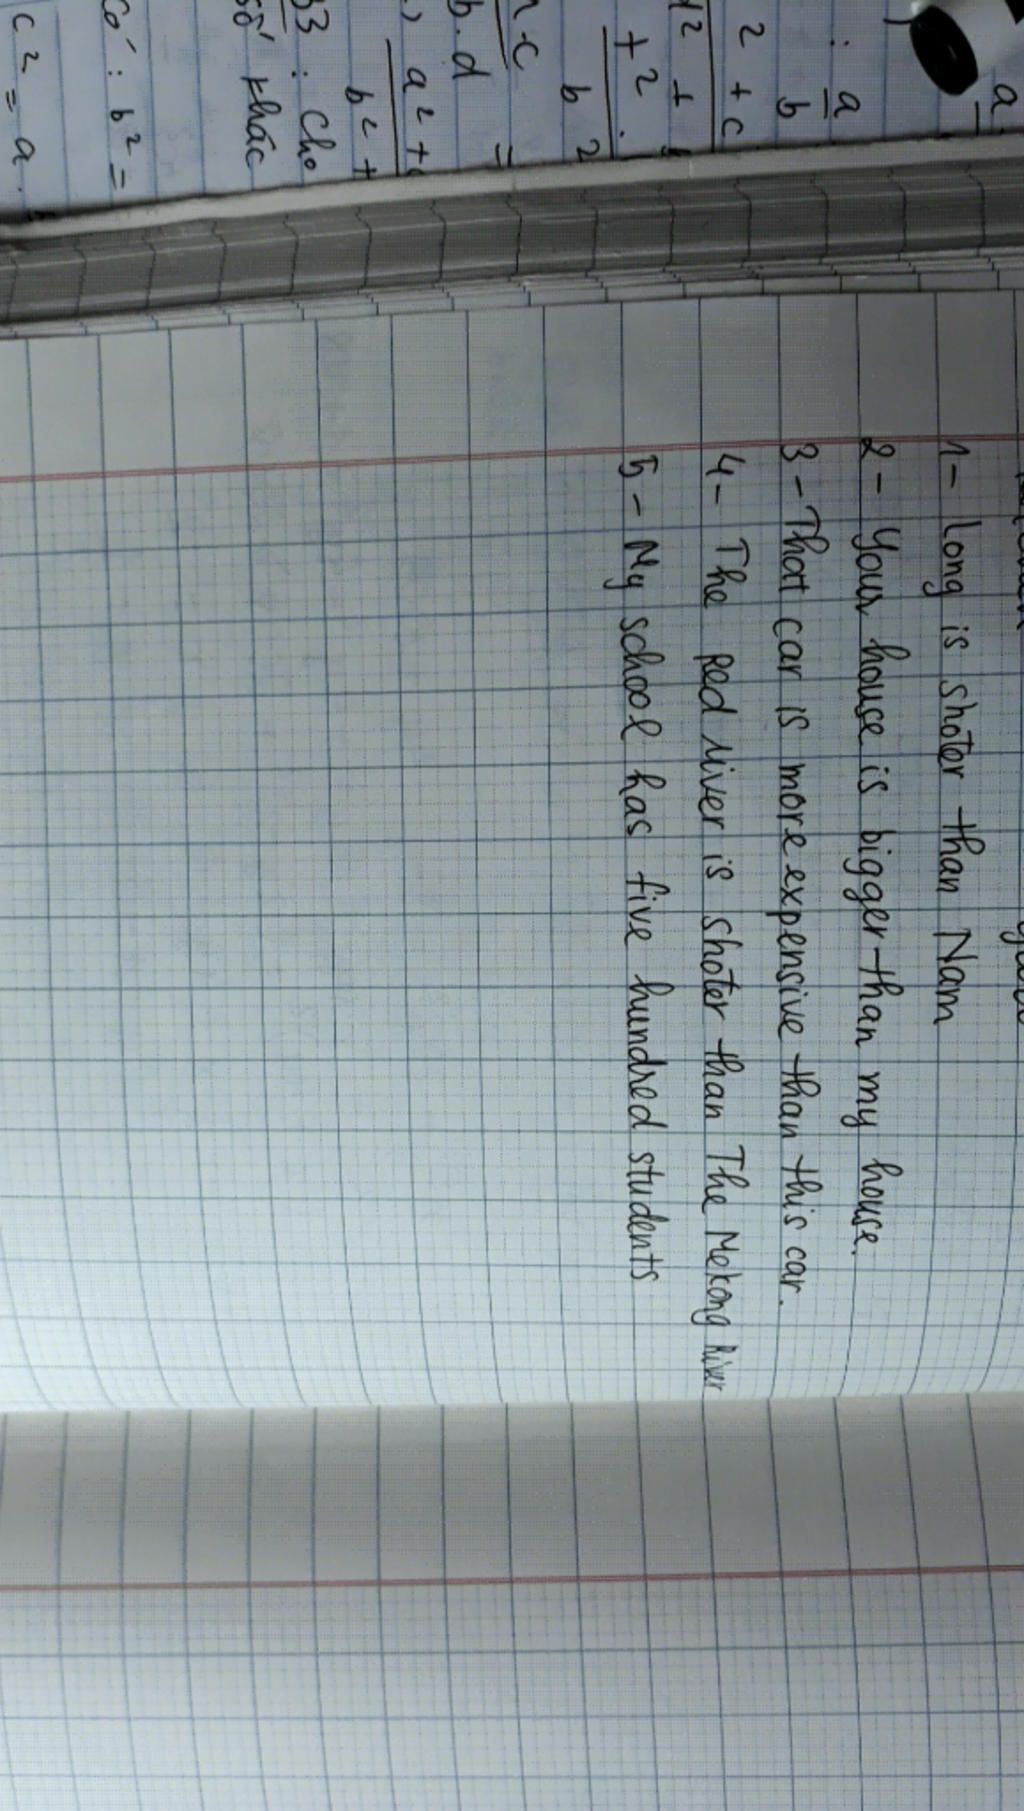 1- Long is shoter than Nam
2- Your house is bigger than my house.
3- That car is more expensive than this car.
4- The Red river is shoter than The Mekong River
5- My school has five hundred students
a
: a
b
2 + c
d2 +
+2
b2
b.d =
a2 +
b2 +
33 : Cho
số khác
Có : b2 =
c2 = a.